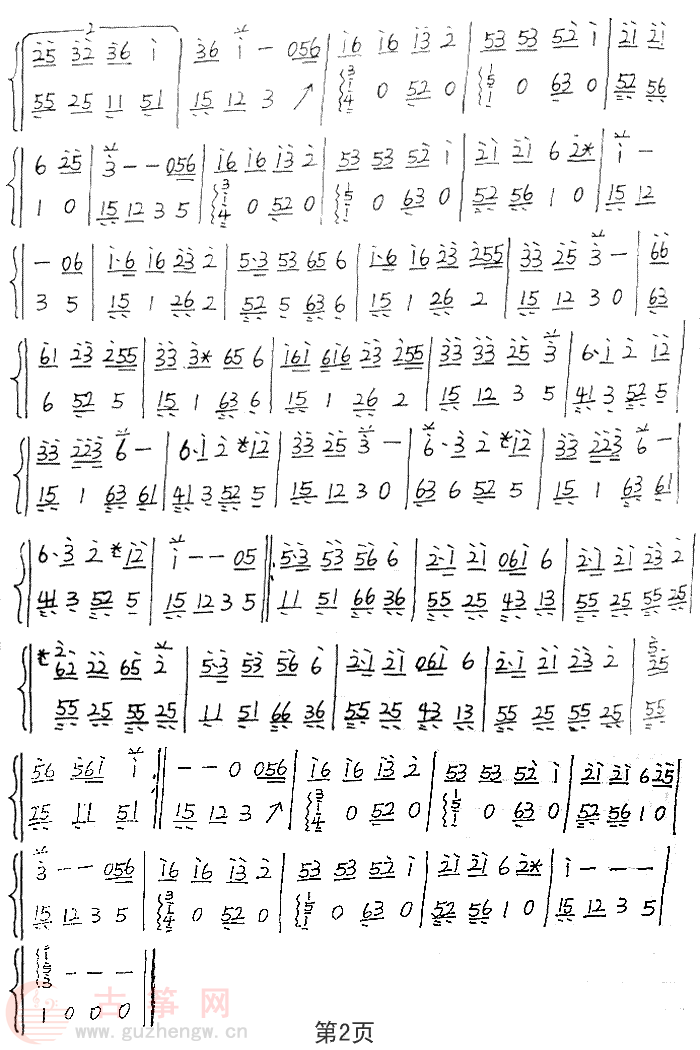 2
25 32 36 1 | 36 1 - 056 | 16 16 13 2 | 53 53 52 1 | 21 21
55 25 11 51 | 15 12 3 ↗ | 3 1 4 0 52 0 | 1 5 1 0 63 0 | 52 56
6 25 | 3 - - 056 | 16 16 13 2 | 53 53 52 1 | 21 21 6 2* | 1 -
1 0 | 15 12 3 5 | 3 1 4 0 52 0 | 1 5 1 0 63 0 | 52 56 1 0 | 15 12
- 06 | 1·6 16 23 2 | 5·3 53 65 6 | 1·6 16 23 255 | 33 25 3 - | 66
3 5 | 15 1 26 2 | 52 5 63 6 | 15 1 26 2 | 15 12 3 0 | 63
61 23 255 | 33 3* 65 6 | 161 616 23 255 | 33 33 25 3 | 6·1 2 12
6 52 5 | 15 1 63 6 | 15 1 26 2 | 15 12 3 5 | 41 3 52 5
33 223 6 - | 6·1 2 *12 | 33 25 3 - | 6·3 2 *12 | 33 223 6 -
15 1 63 61 | 41 3 52 5 | 15 12 3 0 | 63 6 52 5 | 15 1 63 61
6·3 2 *12 | 1 - - 05 ‖: 5·3 53 56 6 | 2·1 21 061 6 | 2·1 21 23 2
41 3 52 5 | 15 12 3 5 ‖: 11 51 66 36 | 55 25 43 13 | 55 25 55 25
2 62 22 65 2 | 5·3 53 56 6 | 2·1 21 061 6 | 2·1 21 23 2 | 5 25
55 25 55 25 | 11 51 66 36 | 55 25 43 13 | 55 25 55 25 | 55
56 561 1 :‖ - - 0 056 | 16 16 13 2 | 53 53 52 1 | 21 21 6 25
25 11 51 :‖ 15 12 3 ↗ | 3 1 4 0 52 0 | 1 5 1 0 63 0 | 52 56 1 0
3 - - 056 | 16 16 13 2 | 53 53 52 1 | 21 21 6 2* | 1 - - -
15 12 3 5 | 3 1 4 0 52 0 | 1 5 1 0 63 0 | 52 56 1 0 | 15 12 3 5
1 5 3 - - - ‖
1 0 0 0 ‖
古筝网
www.guzhengw.cn
第2页